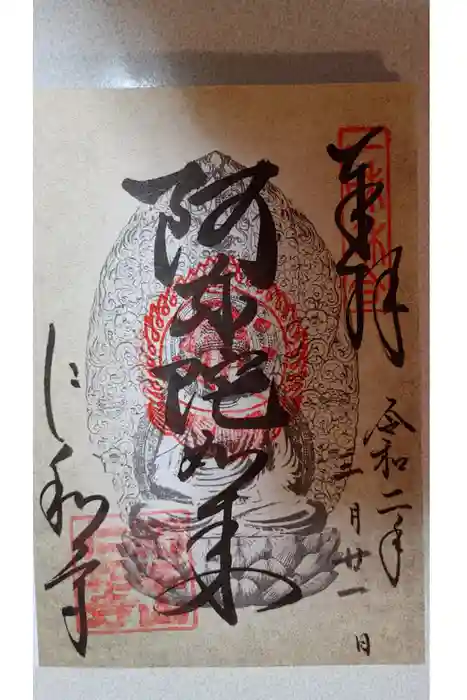 奉拝
令和二年
二月廿一日
阿弥陀如来
仁和寺